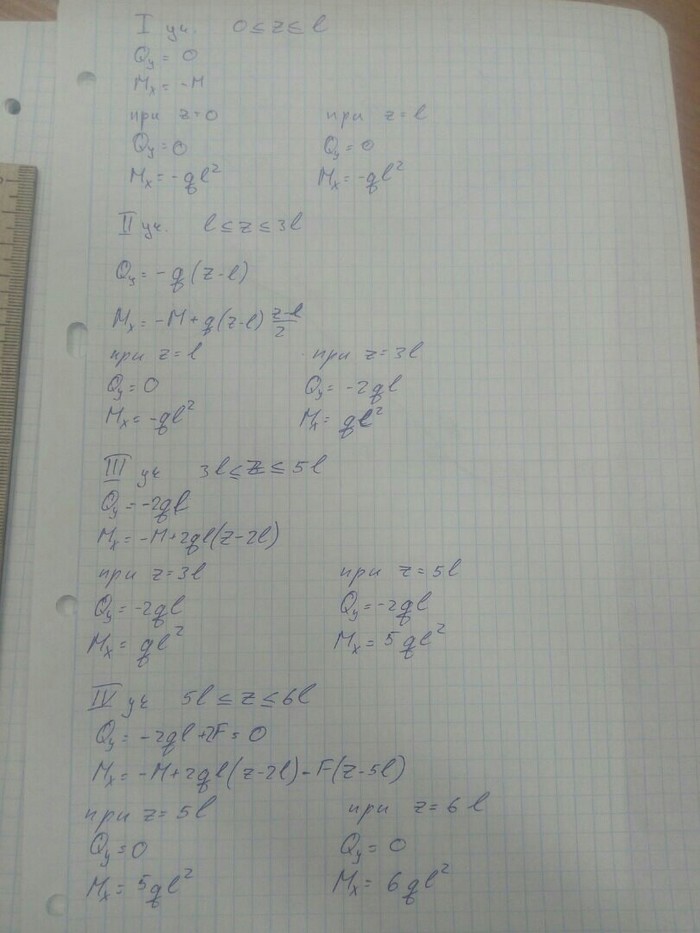 I уч. 0 ≤ z ≤ l
Qy = 0
Mx = -M
при z=0 при z=l
Qy = 0 Qy = 0
Mx = -ql² Mx = -ql²
II уч. l ≤ z ≤ 3l
Qy = -q(z-l)
Mx = -M + q(z-l) (z-l)/2
при z=l при z=3l
Qy = 0 Qy = -2ql
Mx = -ql² Mx = ql²
III уч 3l ≤ z ≤ 5l
Qy = -2ql
Mx = -M+2ql(z-2l)
при z=3l при z=5l
Qy = -2ql Qy = -2ql
Mx = ql² Mx = 5ql²
IV уч 5l ≤ z ≤ 6l
Qy = -2ql+2F = 0
Mx = -M+2ql(z-2l)-F(z-5l)
при z=5l при z=6l
Qy = 0 Qy = 0
Mx = 5ql² Mx = 6ql²